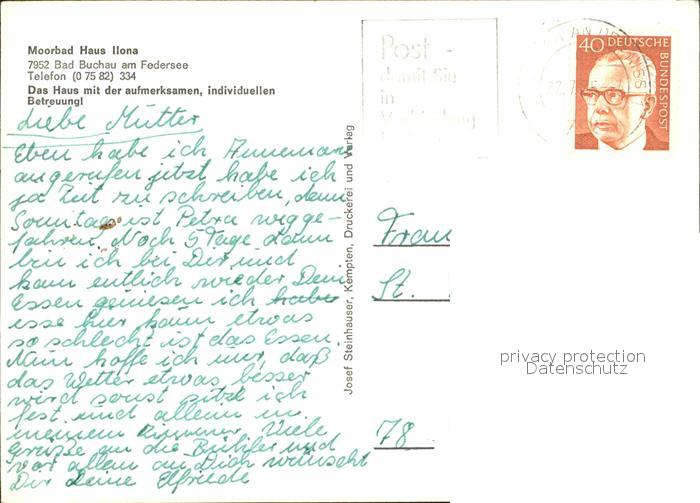 Moorbad Haus Ilona
7952 Bad Buchau am Federsee
Telefon (0 75 82) 334
Das Haus mit der aufmerksamen, individuellen
Betreuung!
Liebe Mutter
Eben habe ich Annemarie
angerufen jetzt habe ich
ja Zeit zu schreiben, denn
Sonntag ist Petra wegge-
fahren. Noch 5 Tage dann
bin ich bei Dir und
kann entlich wieder Dein
Essen geniesen ich habe
esse hier kaum etwas
so schlecht ist das Essen.
Nun hoffe ich nur, daß
das Wetter etwas besser
wird sonst sitzt ich
fest und allein in
meinem Zimmer. Viele
Grüsse an die und
vor allem an Dich wünscht
Dir Deine Elfriede
Josef Steinhauser, Kempten, Druckerei und Verlag
Post -
damit Sie
in
Verbindung
40 DEUTSCHE
BUNDESPOST
Frau
St.
78
privacy protection
Datenschutz